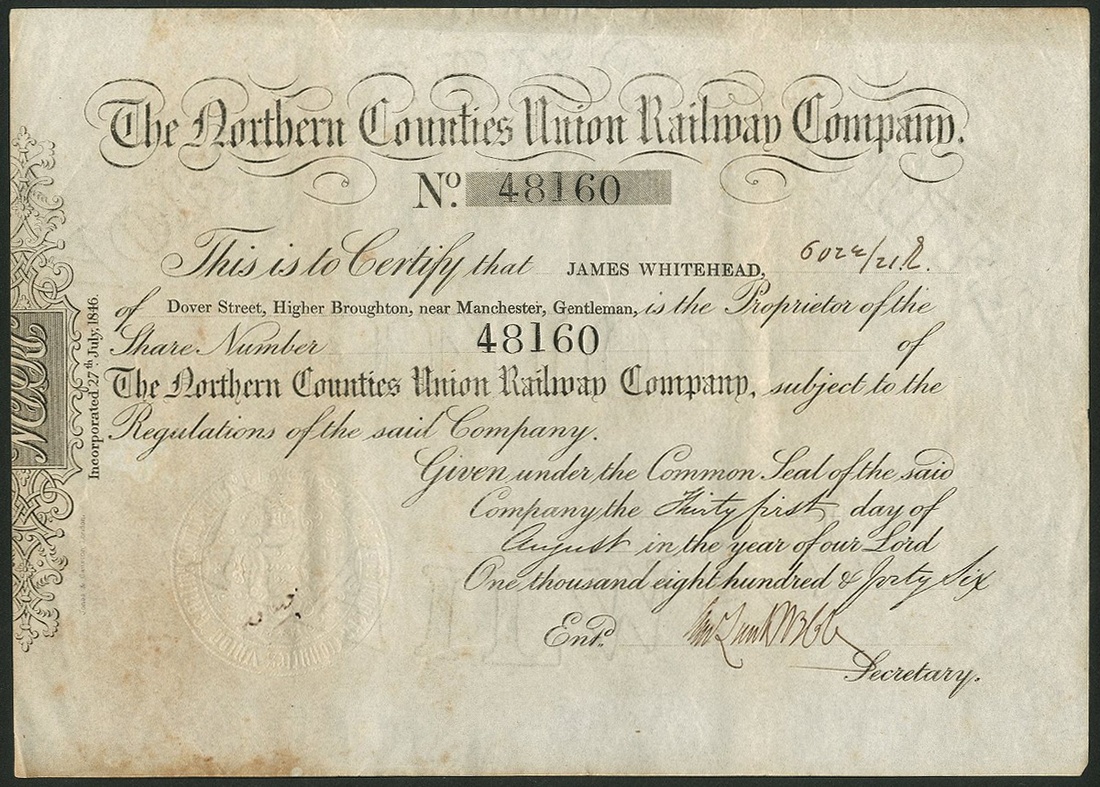 The Northern Counties Union Railway Company.
No. 48160
This is to Certify that JAMES WHITEHEAD,
of Dover Street, Higher Broughton, near Manchester, Gentleman, is the Proprietor of the
Share Number 48160 of
The Northern Counties Union Railway Company, subject to the
Regulations of the said Company.
Given under the Common Seal of the said
Company the Thirty first day of
August in the year of our Lord
One thousand eight hundred & forty Six
Entd.
Secretary.
Incorporated 27th July, 1846.